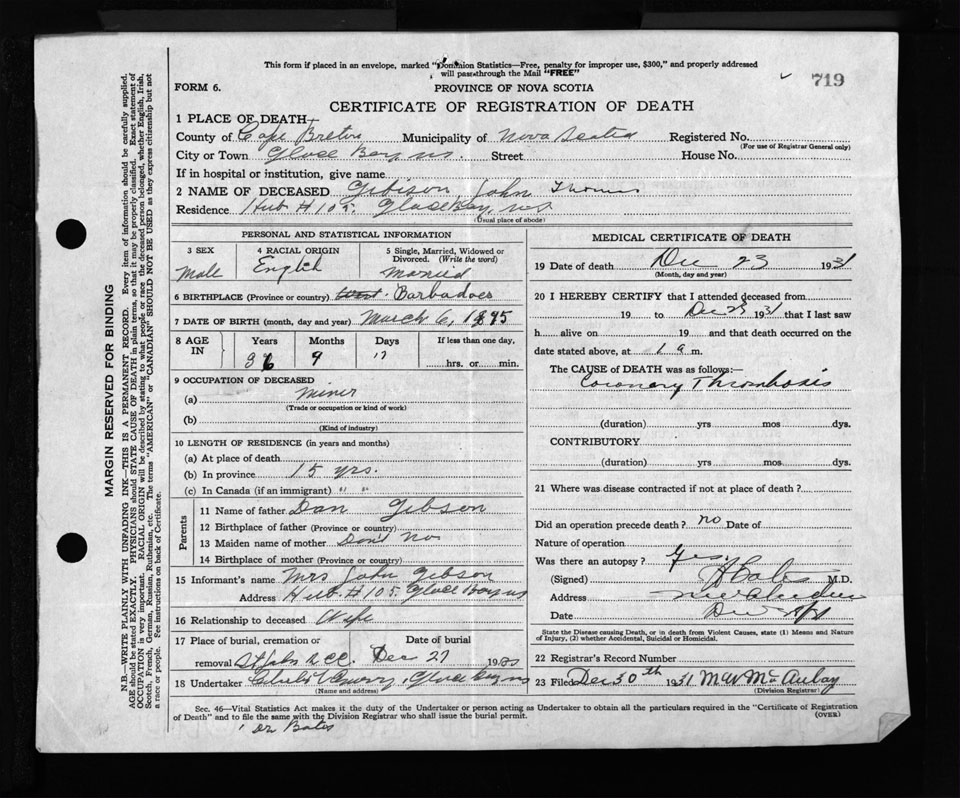 This form if placed in an envelope, marked "Dominion Statistics—Free, penalty for improper use, $300," and properly addressed
will pass through the Mail "FREE"
719
FORM 6.
PROVINCE OF NOVA SCOTIA
CERTIFICATE OF REGISTRATION OF DEATH
1 PLACE OF DEATH—
County of Cape Breton Municipality of Nova Scotia Registered No.
(For use of Registrar General only)
City or Town Glace Bay ns. Street House No.
If in hospital or institution, give name
2 NAME OF DECEASED Gibison John Thomas
Residence Hub # 105. Glace Bay, ns
(Usual place of abode)
PERSONAL AND STATISTICAL INFORMATION
3 SEX
Male
4 RACIAL ORIGIN
English
5 Single, Married, Widowed or
Divorced. (Write the word)
Married
6 BIRTHPLACE (Province or country) Barbadoes
7 DATE OF BIRTH (month, day and year) March 6, 1895
8 AGE
IN
Years Months Days If less than one day,
36 9 17 hrs. or min.
9 OCCUPATION OF DECEASED
(a) miner
(Trade or occupation or kind of work)
(b)
(Kind of industry)
10 LENGTH OF RESIDENCE (in years and months)
(a) At place of death
(b) In province 15 yrs.
(c) In Canada (if an immigrant) " "
Parents
11 Name of father Dan Gibson
12 Birthplace of father (Province or country)
13 Maiden name of mother Don't No
14 Birthplace of mother (Province or country)
15 Informant's name Mrs John Gibson
Address Hub # 105. Glace Bay ns
16 Relationship to deceased Wife
17 Place of burial, cremation or Date of burial
removal Dec 27 19
18 Undertaker Glace Bay ns
(Name and address)
MEDICAL CERTIFICATE OF DEATH
19 Date of death Dec 23 1931
(Month, day and year)
20 I HEREBY CERTIFY that I attended deceased from
19 to Dec 23 1931 that I last saw
h alive on 19 and that death occurred on the
date stated above, at 1 a m.
The CAUSE of DEATH was as follows:—
Coronery Thrombosis
(duration) yrs mos dys.
CONTRIBUTORY
(duration) yrs mos dys.
21 Where was disease contracted if not at place of death?
Did an operation precede death? no Date of
Nature of operation
Was there an autopsy? Yes
(Signed) Bates M.D.
Address
Date Dec
State the Disease causing Death, or in death from Violent Causes, state (1) Means and Nature
of Injury, (2) whether Accidental, Suicidal or Homicidal.
22 Registrar's Record Number
23 Filed Dec 30th 1931 M W McAulay
(Division Registrar)
Sec. 46—Vital Statistics Act makes it the duty of the Undertaker or person acting as Undertaker to obtain all the particulars required in the "Certificate of Registration
of Death" and to file the same with the Division Registrar who shall issue the burial permit.
(OVER)
Dr Bates
MARGIN RESERVED FOR BINDING
N.B.—WRITE PLAINLY WITH UNFADING INK—THIS IS A PERMANENT RECORD. Every item of information should be carefully supplied.
AGE should be stated EXACTLY. PHYSICIANS should STATE CAUSE OF DEATH in plain terms, so that it may be properly classified. Exact statement of
OCCUPATION is very important. RACIAL ORIGIN will be described by stating to what people or race the deceased person belonged, whether English, Irish,
Scotch, French, German, Russian, Ruthenian, etc. The terms "AMERICAN" or "CANADIAN" SHOULD NOT BE USED as they express citizenship but not
a race or people. Fee instructions on back of Certificate.